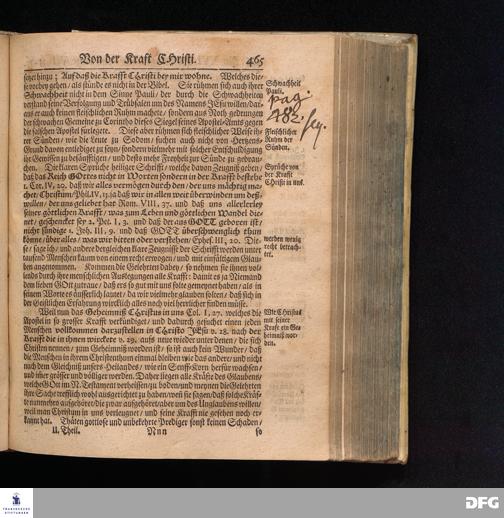 Von der Kraft CHristi. 465
setzet hinzu; Auf daß die Krafft Christi bey mir wohne. Welches die-
se vorbey gehen / als stünde es nicht in der Bibel. Sie rühmen sich auch ihrer
Schwachheit nicht in dem Sinne Pauli / der durch die Schwachheiten
verstand seine Verfolgung und Trübsalen um des Namens JEsu willen / dar-
aus er auch keinen fleischlichen Ruhm machete / sondern aus Noth gedrungen
der schwachen Gemeine zu Corintho dieses Siegel seines Apostel-Amts gegen
die falschen Apostel fürlegete. Diese aber rühmen sich fleischlicher Weise ih-
rer Sünden / wie die Leute zu Sodom / suchen auch nicht von Hertzens-
Grund davon entlediget zu seyn / sondern vielmehr mit solcher Entschuldigung
ihr Gewissen zu besänfftigen / und desto mehr Freyheit zur Sünde zu gebrau-
chen. Die klaren Sprüche heiliger Schrifft / welche davon Zeugniß geben /
daß das Reich GOttes nicht in Worten sondern in der Krafft bestehe
1. Cor. IV, 20. daß wir alles vermögen durch den / der uns mächtig ma-
chet / Christum / Phil. IV, 13. daß wir in allen weit überwinden um deß-
willen / der uns geliebet hat Rom. VIII, 37. und daß uns allerlerley
seiner göttlichen Krafft / was zum Leben und göttlichen Wandel die-
net / geschencket sey 2. Pet. I, 3. und daß der aus GOTT geboren ist /
nicht sündige 1. Joh. III, 9. und daß GOTT überschwenglich thun
könne / über alles / was wir bitten oder verstehen / Ephes. III, 20. Die-
se / sage ich / und andere dergleichen klare Zeugnisse der Schrifft werden unter
tausend Menschen kaum von einem recht erwogen / und mit einfältigem Glau-
ben angenommen. Kommen die Gelehrten dabey / so nehmen sie ihnen vol-
lends durch ihre menschlichen Auslegungen alle Krafft: damit es ja Niemand
dem lieben GOtt zutraue / daß ers so gut mit uns solte gemeynet haben / als in
seinem Worte es äusserlich lautet / da wir vielmehr glauben solten / daß sich in
der Geistlichen Erfahrung wircklich alles noch viel herrlicher finden müsse.
Weil nun das Geheimniß CHristus in uns Col. I, 27. welches die
Apostel in so grosser Krafft verkündiget / und dadurch gesuchet einen jeden
Menschen vollkommen darzustellen in Christo JEsu v. 28. nach der
Krafft die in ihnen wircket v. 29. aufs neue wieder unter denen / die sich
Christen nennen / zum Geheimniß worden ist / so ist auch kein Wunder / daß
die Menschen in ihrem Christenthum einmal bleiben wie das andere / und nicht
nach dem Gleichniß unsers Heilandes / wie ein Senff-Korn herfür wachsen /
und im̃er grösser und völliger werden. Daher liegen alle Kräfte des Glaubens /
welche GOtt im N. Testament verheissen / zu boden / und meynen die Gelehrten
ihre Sache trefflich wohl ausgerichtet zu haben / weñ sie sagen / daß solche Kräf-
te nunmehro aufgehöret / die zwar aufgehöret / aber um des Unglaubens willen /
weil man Christum in uns verleugnet / und seine Krafft nie gesehen noch er-
kannt hat. Thäten gottlose und unbekehrte Prediger sonst keinen Schaden /
II. Theil. Nnn so
Schwachheit
Pauli.
pag.
482. seq.
Fleischlicher
Ruhm der
Sünden.
Sprüche von
der Krafft
Christi in uns.
werden wenig
recht betrach-
tet.
Wie Christus
mit seiner
Kraft ein Ge-
heimniß wor-
den.
FRANCKESCHE
STIFTUNGEN
DFG